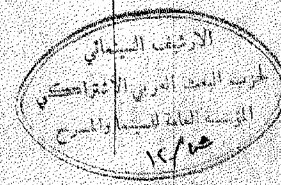 الارشيف السينمائي
لحزب البعث العربي الاشتراكي
المؤسسة العامة للسينما والمسرح